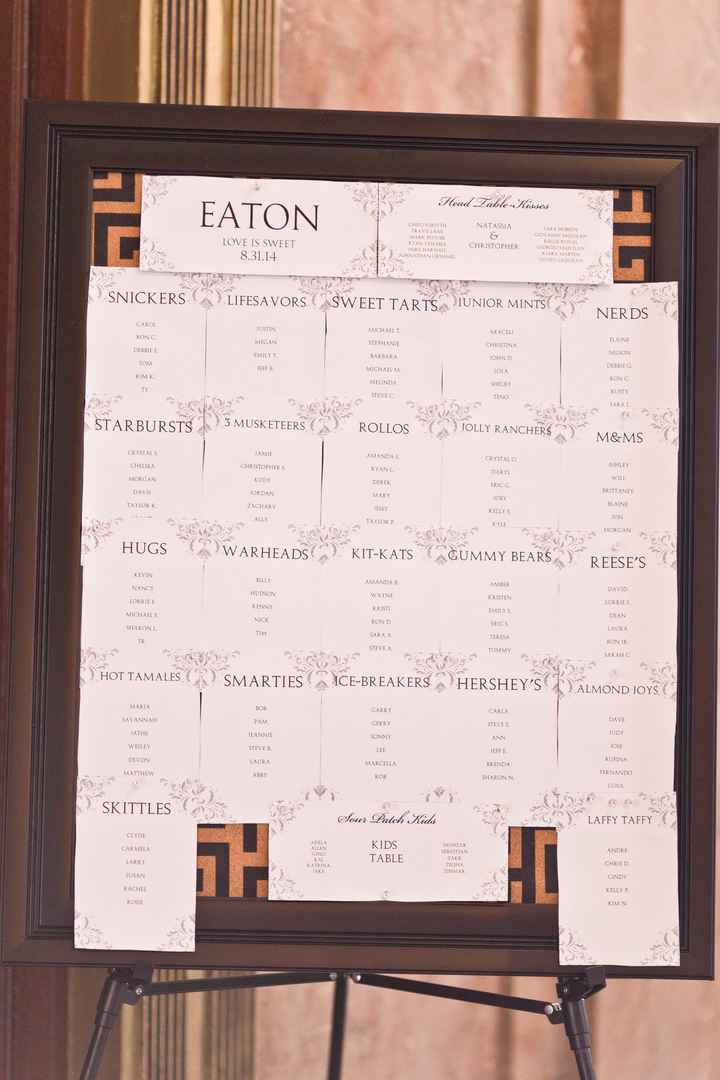 EATON
LOVE IS SWEET
8.31.14
Head Table-Kisses
NATASHA
&
CHRISTOPHER
SNICKERS
CAROL
RON C.
DEBBIE E.
TOM
KIM K.
TY
LIFESAVORS
JUSTIN
MEGAN
EMILY T.
JEFF B.
SWEET TARTS
MICHAEL T.
STEPHANIE
BARBARA
MICHAEL M.
MELINDA
STEVE C.
JUNIOR MINTS
ARACELI
CHRISTINA
JOHN D.
LOLA
SHELBY
TENO
NERDS
ELAINE
DEBBIE G.
RON G.
RUSTY
SARA T.
STARBURSTS
CRYSTAL S.
CHELSEA
MORGAN
DAVIS
TAYLOR K.
3 MUSKETEERS
JAMIE
CHRISTOPHER S.
KODY
JORDAN
ZACHARY
ALLY
ROLLOS
AMANDA G.
RYAN G.
DEREK
MARY
JESSY
TAYLOR P.
JOLLY RANCHERS
CRYSTAL O.
DARYL
ERIC G.
JOEY
KELLY S.
KYLE
M&MS
ASHLEY
WILL
BRITTANEY
BLAINE
JON
MORGAN
HUGS
KEVIN
NANCY
LORRIE E.
MICHAEL E.
SHARON L.
TR
WARHEADS
BILLY
HUDSON
KENNY
NICK
TIM
KIT-KATS
AMANDA B.
WAYNE
KRISTI
RON D.
SARA A.
STEVE A.
GUMMY BEARS
AMBER
KRISTEN
EMILY S.
ERIC S.
TERESA
TOMMY
REESE'S
DAVID
LORRIE L.
DEAN
LAURA
RON JR.
SARAH C.
HOT TAMALES
MARIA
SAVANNAH
JATHE
WESLEY
DEVON
MATTHEW
SMARTIES
BOB
PAM
JEANNIE
STEVE B.
LAURA
ABBY
ICE-BREAKERS
GARRY
GERRY
SONNY
LEE
MARCELLA
ROB
HERSHEY'S
CARLA
STEVE E.
ANN
JEFF E.
BRENDA
SHARON N.
ALMOND JOYS
DAVE
JUDY
JOSE
RUFINA
FERNANDO
SKITTLES
CLYDE
CARMELA
LARRY
SUSAN
RACHEL
ROSIE
Sour Patch Kids
KIDS
TABLE
LAFFY TAFFY
ANDRE
CHRIS D.
CINDY
KELLY P.
KIM N.